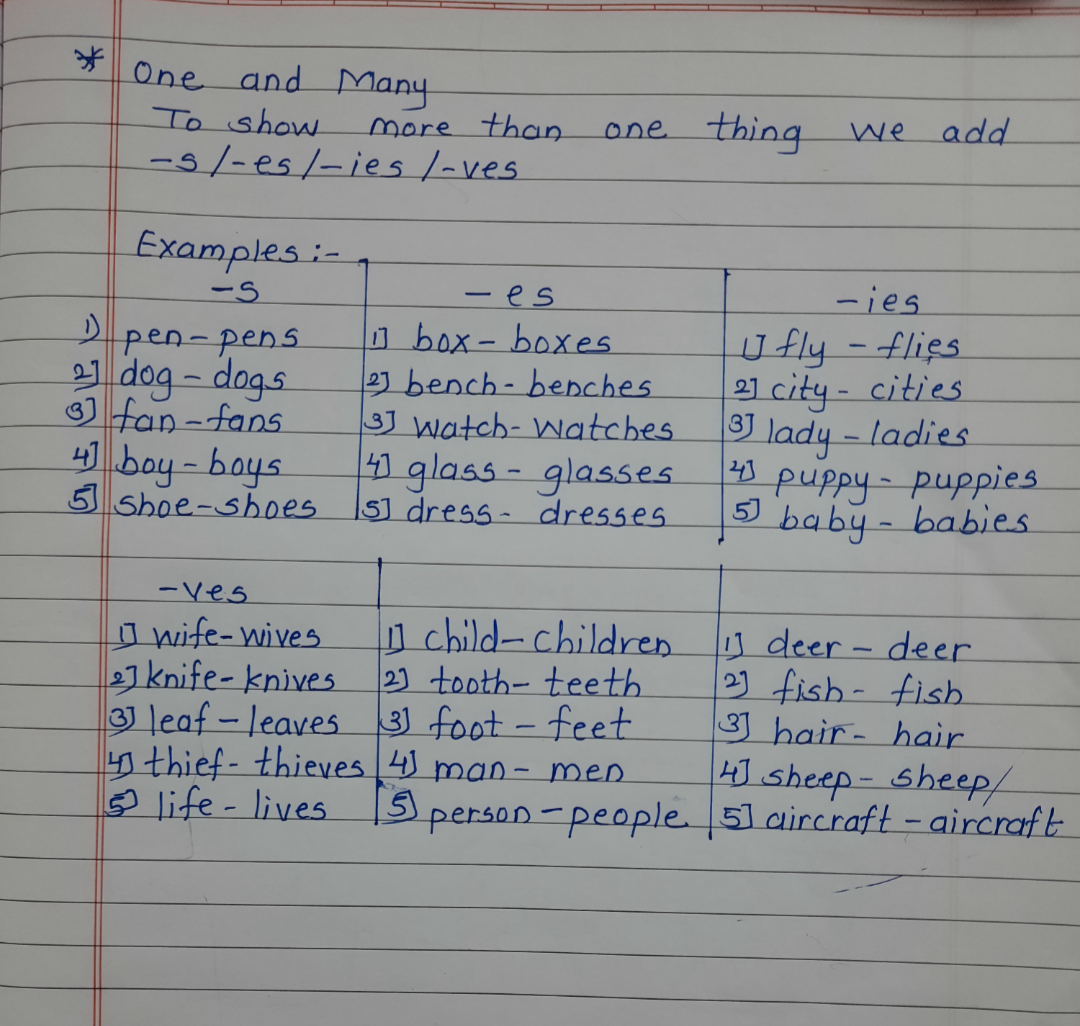 * One and Many
To show more than one thing we add
-s /-es /-ies /-ves
Examples :-
-s
1) pen - pens
2] dog - dogs
3] fan - fans
4] boy - boys
5] shoe - shoes
- es
1] box - boxes
2] bench - benches
3] watch - watches
4] glass - glasses
5] dress - dresses
- ies
1] fly - flies
2] city - cities
3] lady - ladies
4] puppy - puppies
5] baby - babies
-ves
1] wife - wives
2] knife - knives
3] leaf - leaves
4] thief - thieves
5] life - lives
1] child - children
2] tooth - teeth
3] foot - feet
4] man - men
5] person - people
1] deer - deer
2] fish - fish
3] hair - hair
4] sheep - sheep/
5] aircraft - aircraft